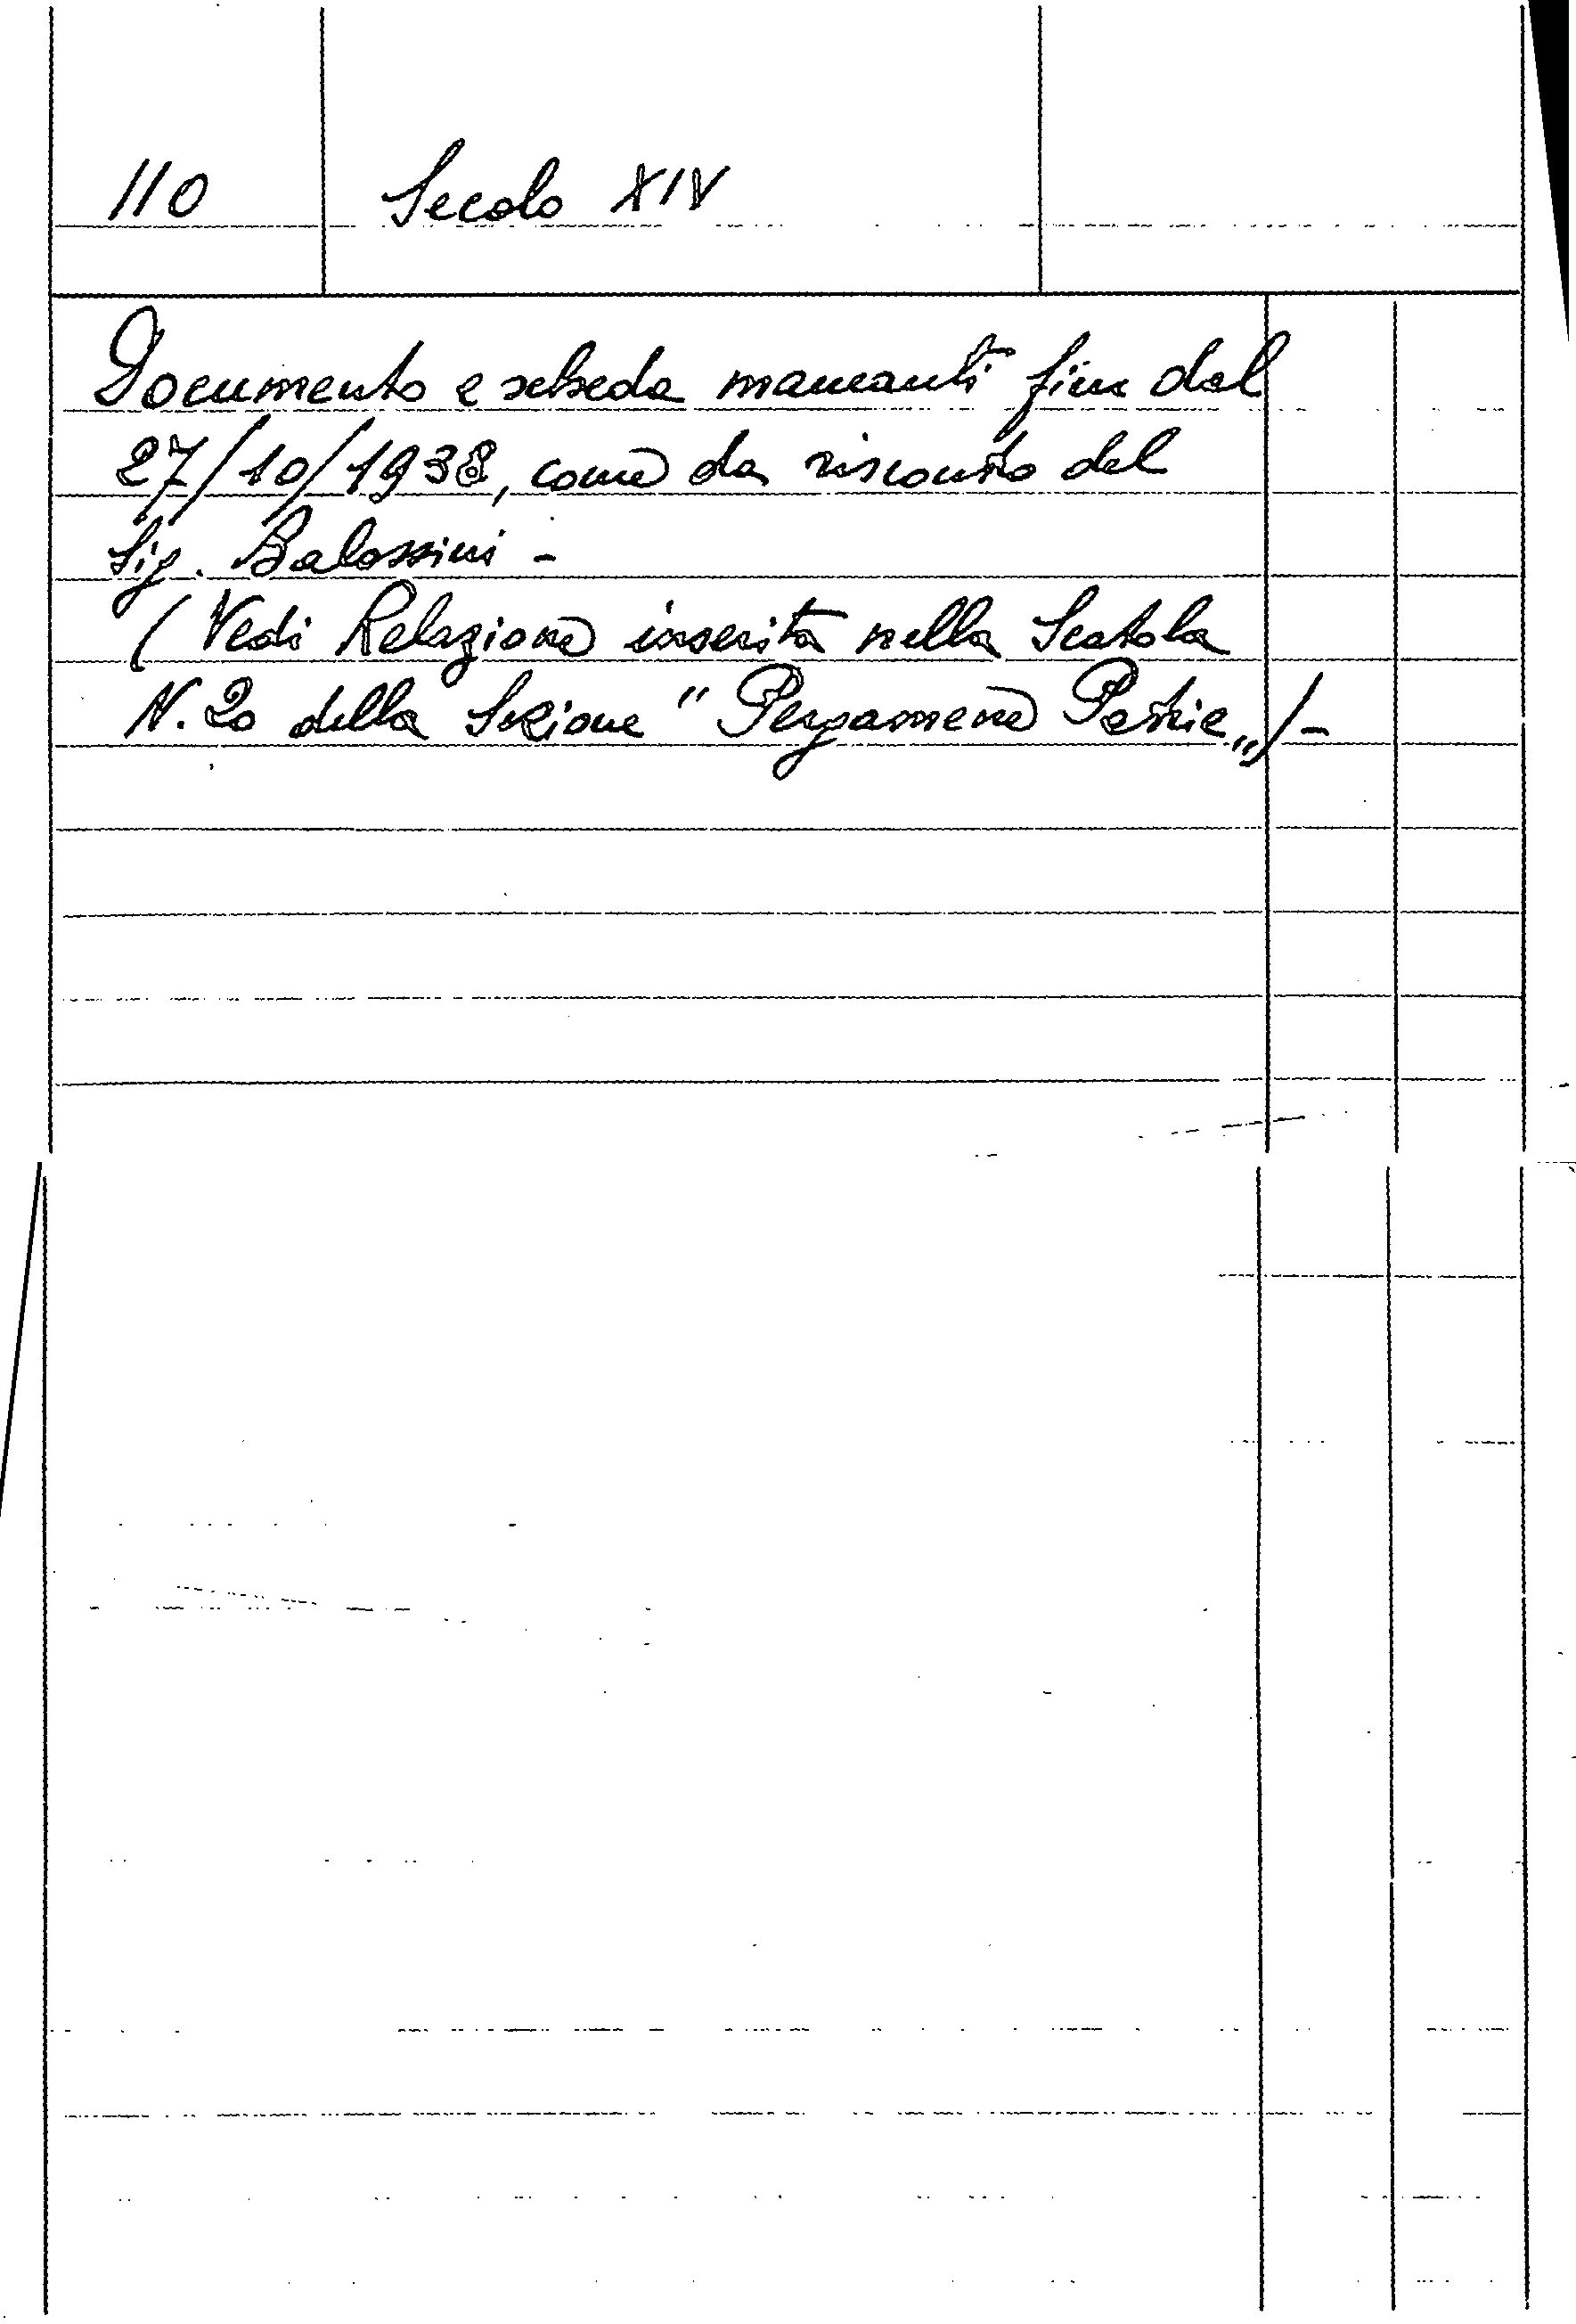 110 Secolo XIV
Documento e scheda mancanti fin dal
27/10/1938, come da riscontro del
Sig. Balossini -
( Vedi Relazione inserita nella Scatola
N. 20 della Sezione " Pergamene Patrie „ ) -